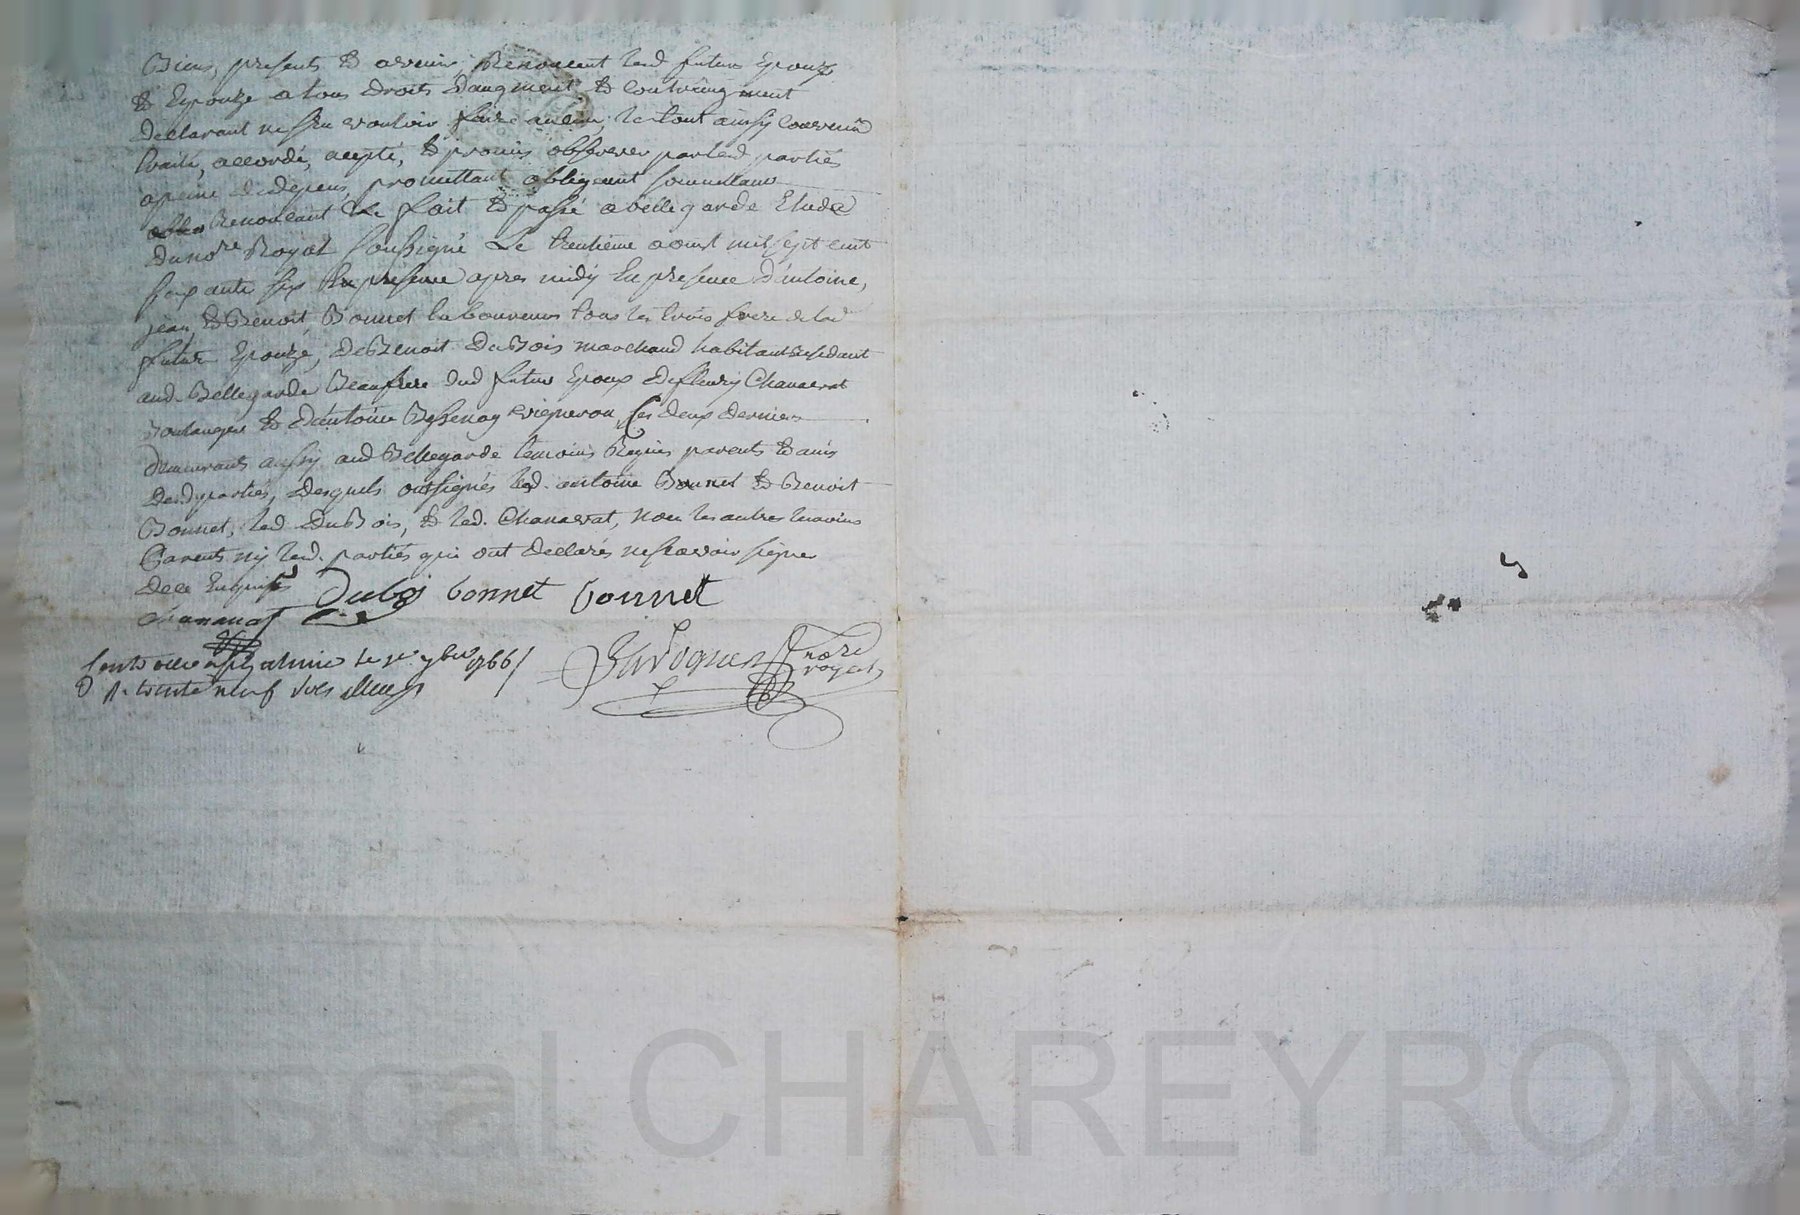 Biens, presents & avenir, Renoncent lesd futurs Epoux
& Epouze a tous droits d'augment & contraugment
declarant ne s'en vouloir faire aucun, le tout ainsy convenu
traité, accordé, acepté, & promis observer par lesd parties
a peine de depens, promettant obligeant soumettant
Renonceant &c fait & passé a bellegarde Etude
du nore Royal soussigné Le trentième aoust mil sept cent
soixante six apres midy En presence d'antoine,
jean, & Benoit Bonnet laboureurs tous les trois frere de lad
future Epouze, de Benoit DuBois marchand habitant Residant
aud Bellegarde Beaufrere dud futur Epoux de fleury Chanavat
Boulanger & d'antoine Bessenay vigneron Ces deux derniers
demeurants aussy aud Bellegarde temoins Requis parents & amis
desd parties, desquels ont signés led. antoine Bonnet & Benoit
Bonnet, led DuBois, & led. Chanavat, non les autres temoins
Parents ny lesd. parties qui ont declarés ne scavoir signer
de ce Enquis
Dubois bonnet bonnet
chanavat
Controllé a St galmier le 1er 7bre 1766
R. trente neuf sols
nore
royal
Pascal CHAREYRON